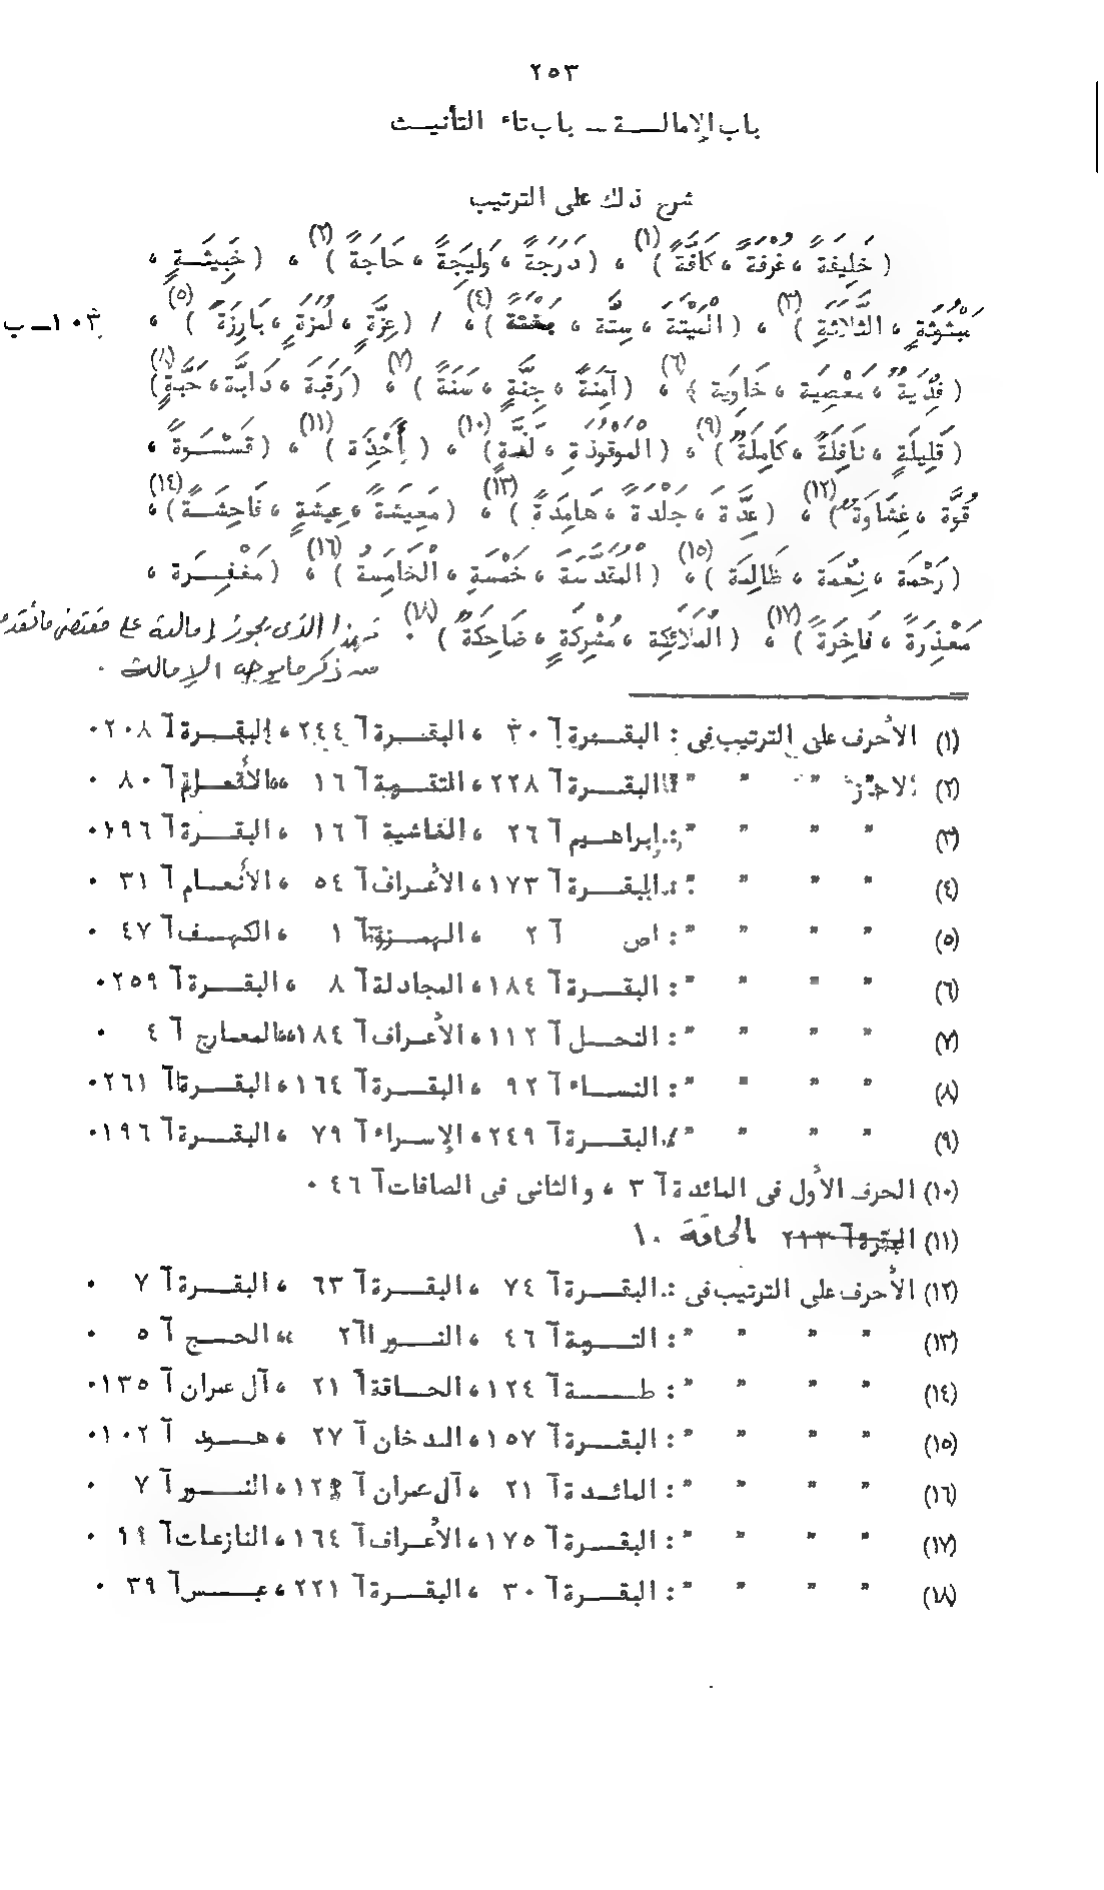 ٢٥٣
باب الإمالـــة ــ باب تاء التأنيـث
شرح ذلك على الترتيب
( خَلِيفَةً ، غُرْفَةً ، كَافَّةً )(١) ، ( دَرَجَةً ، وَلِيجَةً ، حَاجَةً )(٢) ، ( خَبِيثَـةٍ ،
مَبْثُوثَةٍ ، الثَّلاثَةِ )(٣) ، ( الْمَيْتَةَ ، سِتَّة ، بَغْتَةً )(٤) ، / ( عِزَّةٍ ، لُمَزَةٍ ، بَارِزَةً )(٥) ، ١٠٣ــ ب
( فِدْيَةٌ ، مَعْصِيَة ، خَاوِيَة )(٦) ، ( آمِنَةً ، جِنَّةٍ ، سَنَةً )(٧) ، ( رَقَبَة ، دَابَّة ، حَبَّةٍ )(٨)
( قَلِيلَةٍ ، نَافِلَةً ، كَامِلَةٌ )(٩) ، ( المَوْقُوذَةِ ، لَذَّةٍ )(١٠) ، ( أَخْذَة )(١١) ، ( قَسْـوَةً ،
قُوَّة ، غِشَاوَةٌ )(١٢) ، ( عِدَّةَ ، جَلْدَةً ، هَامِدَةً )(١٣) ، ( مَعِيشَةً ، عِيشَةٍ ، فَاحِشَـةً )(١٤) ،
( رَحْمَة ، نِعْمَة ، ظَالِمَة )(١٥) ، ( المُقَدَّسَةَ ، خَمْسَةِ ، الخَامِسَةُ )(١٦) ، ( مَغْفِــرَة ،
مَعْذِرَةً ، نَاخِرَةً )(١٧) ، ( الْمَلَائِكَةِ ، مُشْرِكَةٍ ، ضَاحِكَةٌ )(١٨) . فهذا الذى يجوز إمالته على مقتضى ما تقدم
من ذكر ما يوجب الإمالة .
(١) الأحرف على الترتيب فى : البقــرة آ ٣٠ ، البقــرة آ ٢٤٤ ، البقــرة آ ٢٠٨ .
(٢) " " " " : البقــرة آ ٢٢٨ ، التوبة آ ١٦ ، الأنعـام آ ٨٠ .
(٣) " " " " : إبراهـيم آ ٢٦ ، الغاشية آ ١٦ ، البقــرة آ ١٩٦ .
(٤) " " " " : البقــرة آ ١٧٣ ، الأعـراف آ ٥٤ ، الأنعـام آ ٣١ .
(٥) " " " " : ص آ ٢ ، الهمــزة آ ١ ، الكهــف آ ٤٧ .
(٦) " " " " : البقــرة آ ١٨٤ ، المجادلة آ ٨ ، البقــرة آ ٢٥٩ .
(٧) " " " " : النحــل آ ١١٢ ، الأعـراف آ ١٨٤ ، المعـارج آ ٤ .
(٨) " " " " : النســاء آ ٩٢ ، البقــرة آ ١٦٤ ، البقــرة آ ٢٦١ .
(٩) " " " " : البقــرة آ ٢٤٩ ، الإسـراء آ ٧٩ ، البقــرة آ ١٩٦ .
(١٠) الحرف الأول فى المائدة آ ٣ ، والثانى فى الصافات آ ٤٦ .
(١١) البقرة آ ٢١٣ الحاقة ١٠
(١٢) الأحرف على الترتيب فى : البقــرة آ ٧٤ ، البقــرة آ ٦٣ ، البقــرة آ ٧ .
(١٣) " " " " : التــوبة آ ٤٦ ، النــور آ ٢ ، الحــج آ ٥ .
(١٤) " " " " : طـــه آ ١٢٤ ، الحـاقة آ ٢١ ، آل عمران آ ١٣٥ .
(١٥) " " " " : البقــرة آ ١٥٧ ، الدخان آ ٢٧ ، هــود آ ١٠٢ .
(١٦) " " " " : المائـدة آ ٢١ ، آل عمران آ ، النــور آ ٧ .
(١٧) " " " " : البقــرة آ ١٧٥ ، الأعـراف آ ١٦٤ ، النازعات آ .
(١٨) " " " " : البقــرة آ ٣٠ ، البقــرة آ ٢٢١ ، عبــس آ ٣٩ .